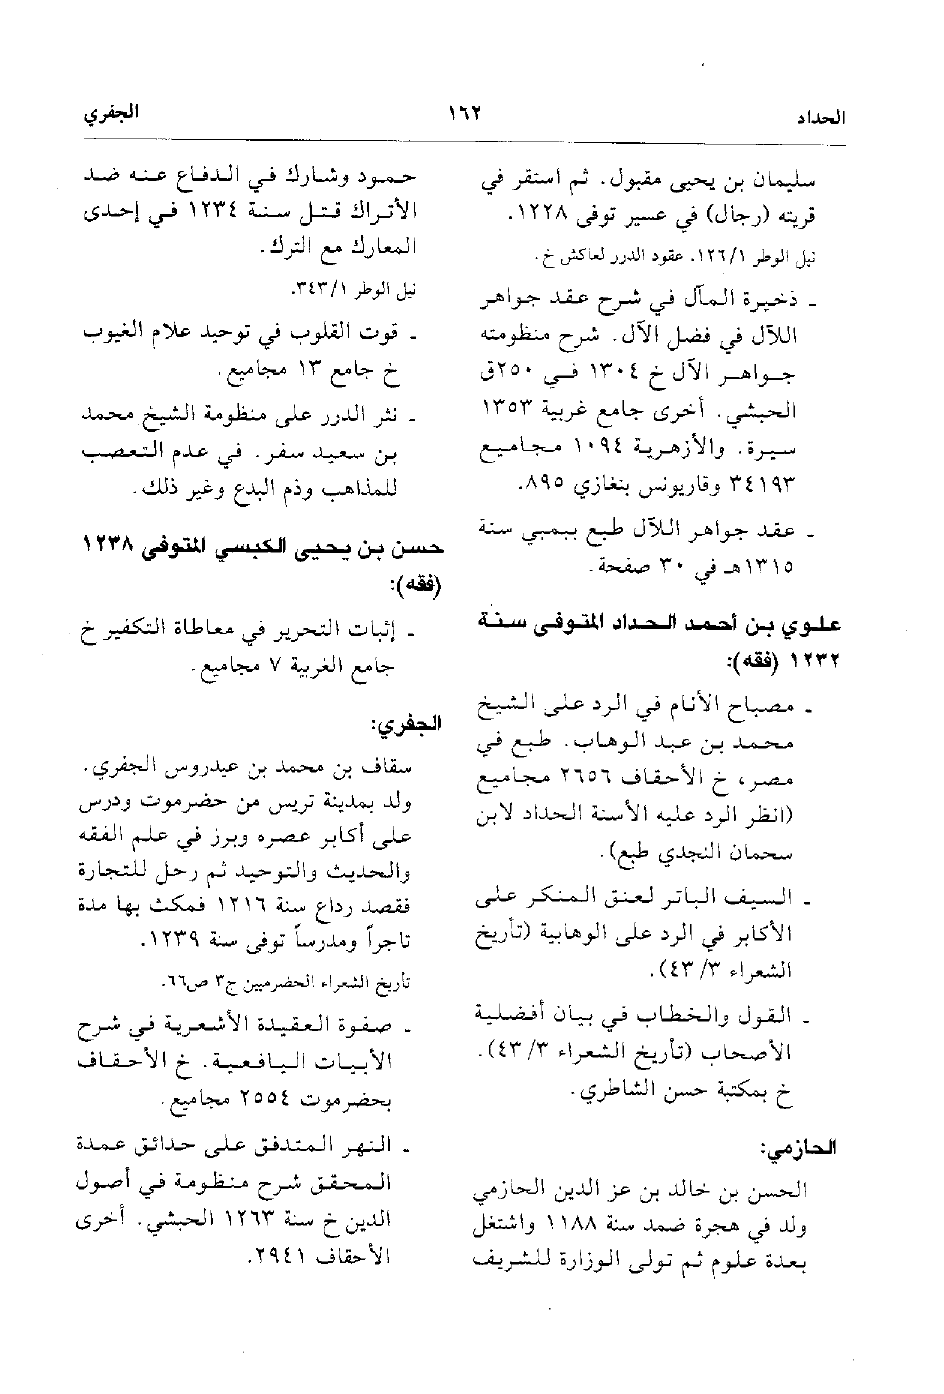 الحداد
١٦٢
الجفري
سليمان بن يحيى مقبول. ثم استقر في
قريته (رجال) في عسير توفى ١٢٢٨.
نيل الوطر ١٢٦/١. عقود الدرر لعاكش خ.
ـ ذخيرة المآل في شرح عقد جواهر
اللآل في فضل الآل. شرح منظومته
جواهر الآل خ ١٣٠٤ في ٢٥٠ق
الحبشي. أخرى جامع غربية ١٣٥٣
سيرة. والأزهرية ١٠٩٤ مجاميع
٣٤١٩٣ وقاريونس بنغازي ٨٩٥.
ـ عقد جواهر اللآل طبع ببمبي سنة
١٣١٥هـ في ٣٠ صفحة.
علوي بن أحمد الحداد المتوفى سنة
١٢٣٢ (فقه):
ـ مصباح الأنام في الرد على الشيخ
محمد بن عبد الوهاب. طبع في
مصر، خ الأحقاف ٢٦٥٦ مجاميع
(انظر الرد عليه الأسنة الحداد لابن
سحمان النجدي طبع).
ـ السيف الباتر لعنق المنكر على
الأكابر في الرد على الوهابية (تأريخ
الشعراء ٣/ ٤٣).
ـ القول والخطاب في بيان أفضلية
الأصحاب (تأريخ الشعراء ٣/ ٤٣).
خ بمكتبة حسن الشاطري.
الحازمي:
الحسن بن خالد بن عز الدين الحازمي
ولد في هجرة ضمد سنة ١١٨٨ واشتغل
بعدة علوم ثم تولى الوزارة للشريف
حمود وشارك في الدفاع عنه ضد
الأتراك قتل سنة ١٢٣٤ في إحدى
المعارك مع الترك.
نيل الوطر ٣٤٣/١.
ـ قوت القلوب في توحيد علام الغيوب
خ جامع ١٣ مجاميع.
ـ نثر الدرر على منظومة الشيخ محمد
بن سعيد سفر. في عدم التعصب
للمذاهب وذم البدع وغير ذلك.
حسن بن يحيى الكبسي المتوفى ١٢٣٨
(فقه):
ـ إثبات التحرير في معاطاة التكفير خ
جامع الغربية ٧ مجاميع.
الجفري:
سقاف بن محمد بن عيدروس الجفري.
ولد بمدينة تريس من حضرموت ودرس
على أكابر عصره وبرز في علم الفقه
والحديث والتوحيد ثم رحل للتجارة
فقصد رداع سنة ١٢١٦ فمكث بها مدة
تاجراً ومدرساً توفى سنة ١٢٣٩.
تأريخ الشعراء الحضرميين ج٣ ص٦٦.
ـ صفوة العقيدة الأشعرية في شرح
الأبيات اليافعية. خ الأحقاف
بحضرموت ٢٥٥٤ مجاميع.
ـ النهر المتدفق على حدائق عمدة
المحقق شرح منظومة في أصول
الدين خ سنة ١٢٦٣ الحبشي. أخرى
الأحقاف ٢٩٤١.